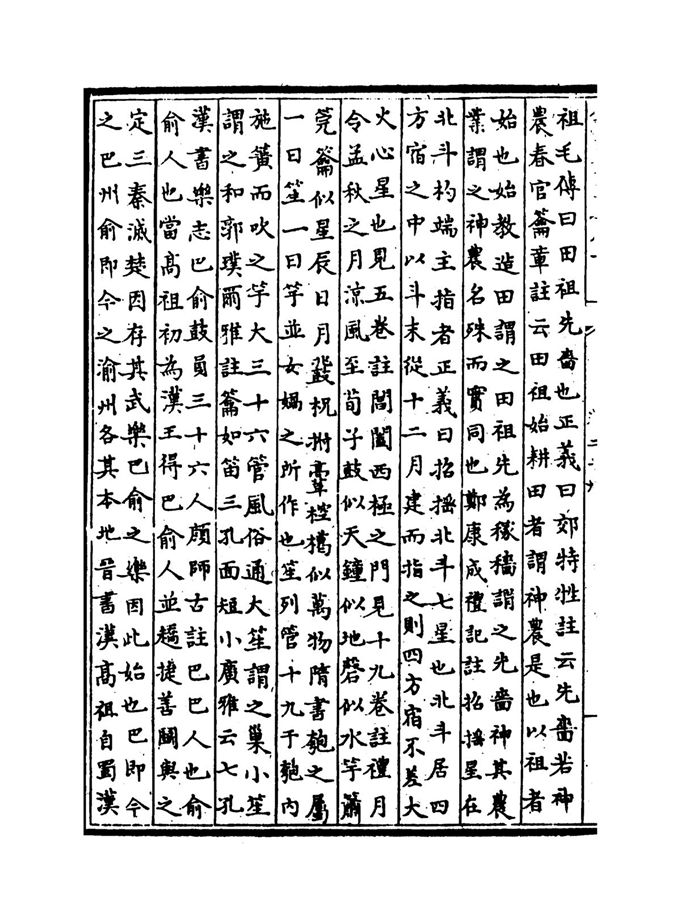 祖毛傳曰田祖先嗇也正義曰郊特牲註云先嗇若神
農春官籥章註云田祖始耕田者謂神農是也以祖者
始也始教造田謂之田祖先為稼穡謂之先嗇神其農
業謂之神農名殊而實同也鄭康成禮記註招搖星在
北斗杓端主指者正義曰招搖北斗七星也北斗居四
方宿之中以斗末從十二月建而指之則四方宿不差大
火心星也見五卷註閶闔西極之門見十九卷註禮月
令孟秋之月涼風至荀子鼓似天鐘似地磬似水竽簫
筦籥似星辰日月鼗柷拊鞷椌楬似萬物隋書匏之屬
一曰笙一曰竽並女媧之所作也笙列管十九于匏內
施簧而吹之竽大三十六管風俗通大笙謂之巢小笙
謂之和郭璞爾雅註籥如笛三孔面短小廣雅云七孔
漢書樂志巴俞鼓員三十六人顔師古註巴巴人也俞
俞人也當髙祖初為漢王得巴俞人並趫捷善鬭與之
定三秦滅楚因存其武樂巴俞之樂因此始也巴即今
之巴州俞即今之渝州各其本地晉書漢髙祖自蜀漢